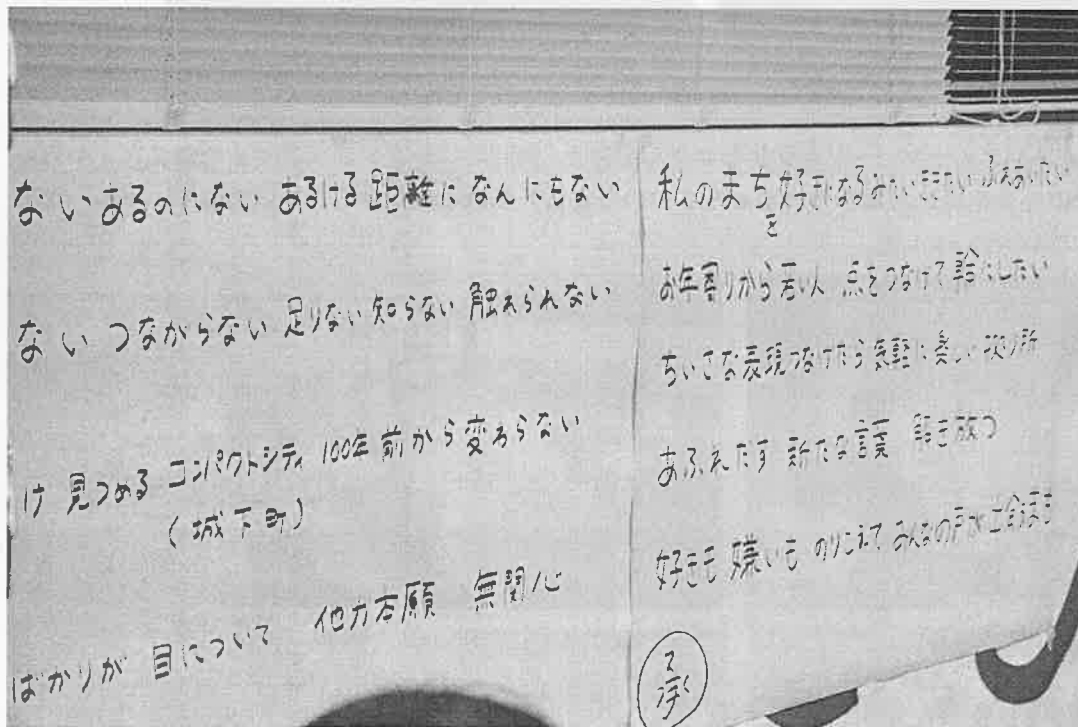 ないあるのにない あるける距離になんにもない
ない つながらない 足りない 知らない 触れられない
け 見つめる コンパクトシティ 100年前から変わらない
(城下町)
ばかりが 目について 他力本願 無関心
私のまち好きになるみたいききたいふれあいたい
を
お年寄りから若い人 点をつなげて輪にしたい
ちいさな表現つなげたら気軽に楽しい 拠り所
あふれだす 新たな言葉 解き放つ
好きも 嫌いも のりこえて みんなの声が